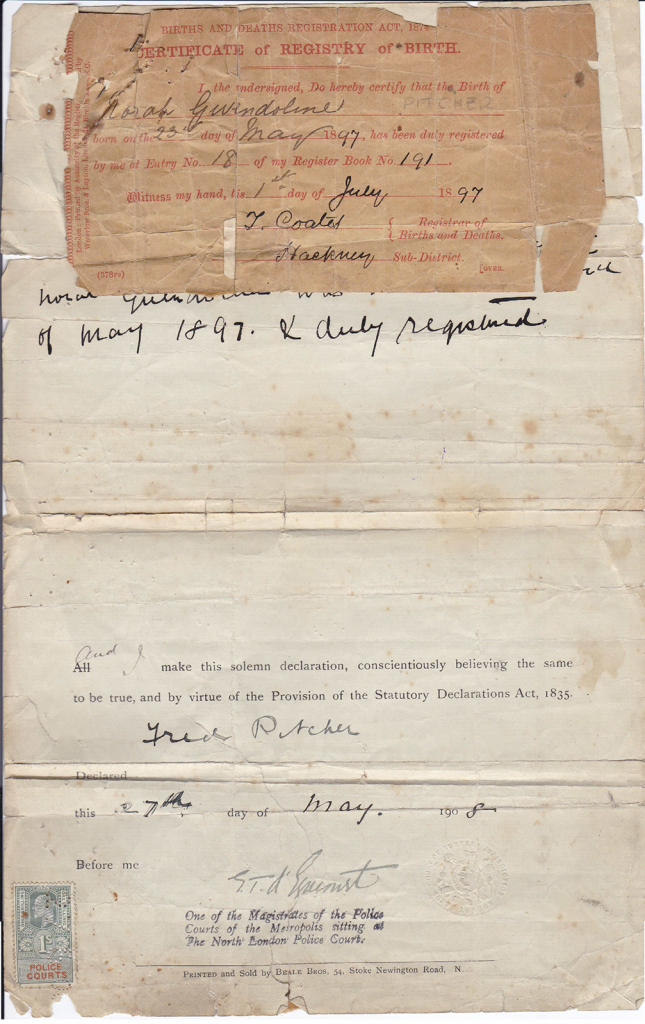 BIRTHS AND DEATHS REGISTRATION ACT, 1874
CERTIFICATE of REGISTRY of BIRTH.
I the undersigned, Do hereby certify that the Birth of
Norah Gwindoline PITCHER
born on the 23rd day of May 1897, has been duly registered
by me at Entry No. 18 of my Register Book No. 191.
Witness my hand, this 1st day of July 1897
T. Coates { Registrar of
Births and Deaths.
Hackney Sub-District.
(578rs) [OVER.
Norah Gwindoline was
of May 1897. & duly registered
And I
All make this solemn declaration, conscientiously believing the same
to be true, and by virtue of the Provision of the Statutory Declarations Act, 1835.
Fred Pitcher
Declared
this 27th day of May. 1908
Before me
One of the Magistrates of the Police
Courts of the Metropolis sitting at
The North London Police Court.
1s
POLICE
COURTS
PRINTED and Sold by BEALE BROS. 54, Stoke Newington Road, N.